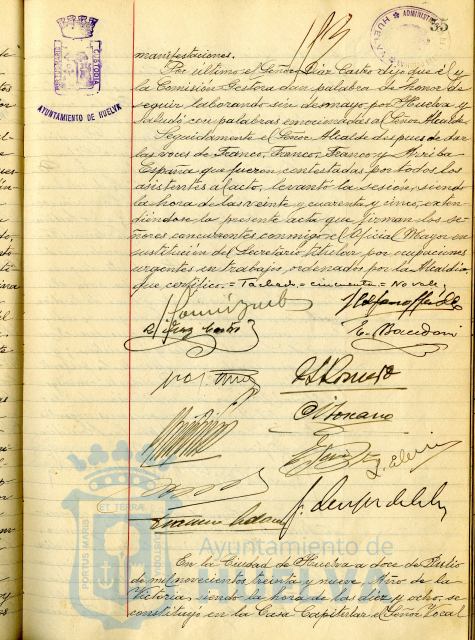 35
AYUNTAMIENTO DE HUELVA
CUSTODIA
manifestaciones.
Por último el Señor Díaz Castro dijo que él y
la Comisión Gestora dan palabra de honor de
seguir laborando sin desmayo por Huelva y
saludó con palabras emocionadas al Señor Alcalde.
Seguidamente el Señor Alcalde después de dar
las voces de Franco, Franco, Franco y Arriba
España que fueron contestadas por todos los
asistentes al acto, levantó la sesión, siendo
la hora de las veinte y cuarenta y cinco, exten-
diéndose la presente acta que firman los se-
ñores concurrentes conmigo el Oficial Mayor en
sustitución del Secretario titular por ocupaciones
urgentes en trabajos ordenados por la Alcaldía,
que certifico. = Tachado = cincuenta = No vale.
Díaz Castro
E. Macedoni
Romero
PORTUS MARIS
ET TERRÆ
CUSTODIA
Ayuntamiento de
HUELVA
En la Ciudad de Huelva a doce de Julio
de mil novecientos treinta y nueve Año de la
Victoria, siendo la hora de las diez y ocho, se
constituyó en la Casa Capitular el Señor Local